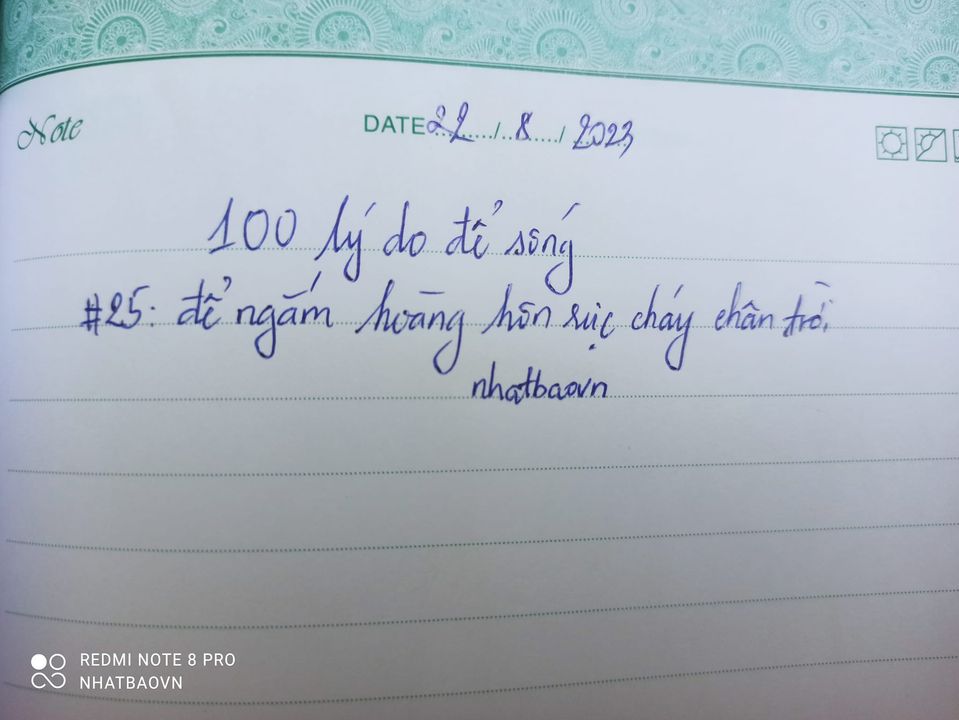 Note
DATE 22/8/2023
100 lý do để sống
#25: để ngắm hoàng hôn rực cháy chân trời
nhatbaovn
REDMI NOTE 8 PRO
NHATBAOVN